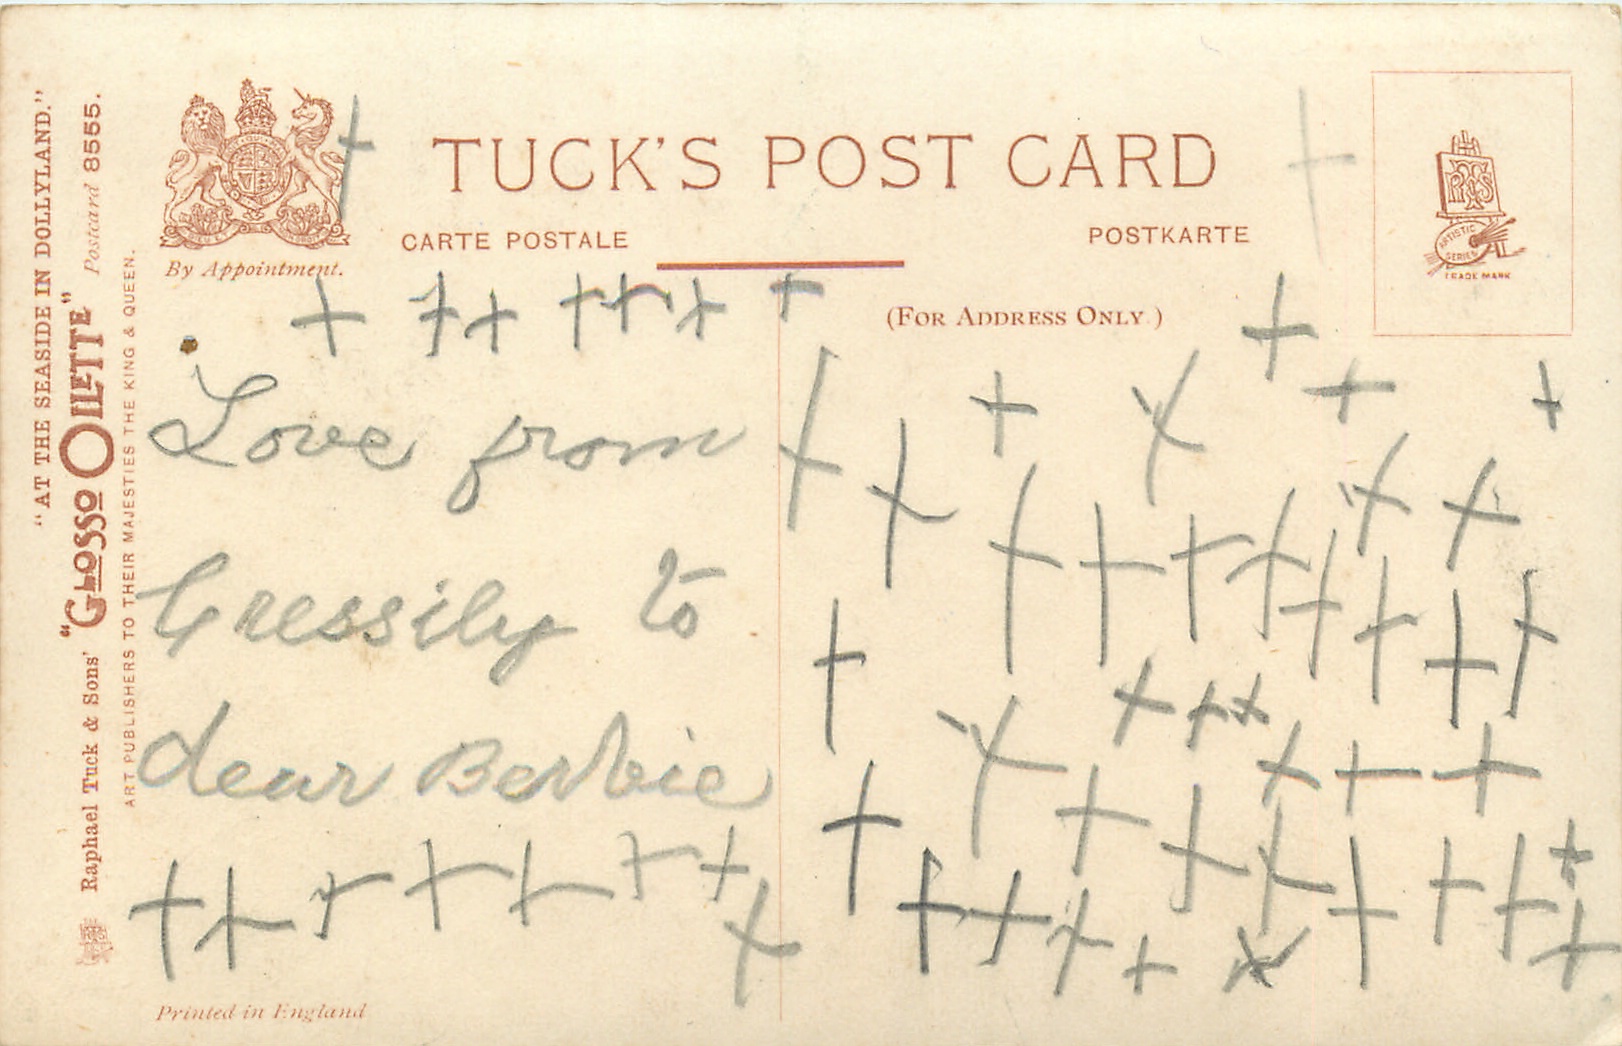 "AT THE SEASIDE IN DOLLYLAND."
Raphael Tuck & Sons' "GLOSSO OILETTE" Postcard 8555.
ART PUBLISHERS TO THEIR MAJESTIES THE KING & QUEEN.
TUCK'S POST CARD
CARTE POSTALE
POSTKARTE
By Appointment.
(FOR ADDRESS ONLY.)
ARTISTIC
SERIES
TRADE MARK
Love from
Cressily to
dear Berbie
Printed in England